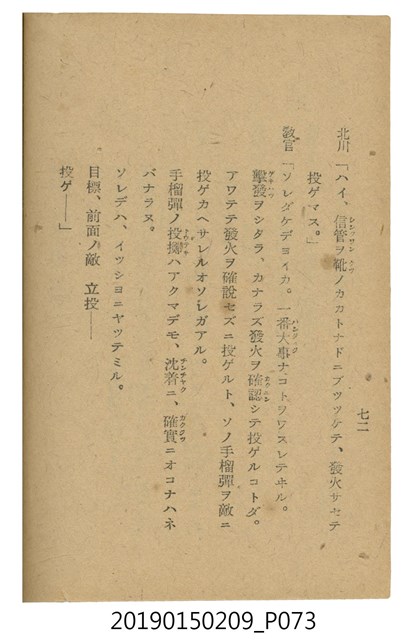 七二
北川「ハイ、信管ヲ靴ノカカトナドニブツツケテ、發火サセテ
投ゲマス。」
教官「ソレダケデヨイカ。一番大事ナコトヲワスレテヰル。
擊發ヲシタラ、カナラズ發火ヲ確認シテ投ゲルコトダ。
アワテテ發火ヲ確認セズニ投ゲルト、ソノ手榴彈ヲ敵ニ
投ゲカヘサレルオソレガアル。
手榴彈ノ投擲ハアクマデモ、沈着ニ、確實ニオコナハネ
バナラヌ。
ソレデハ、イツシヨニヤツテミル。
目標、前面ノ敵 立投——
投ゲ——」
20190150209_P073